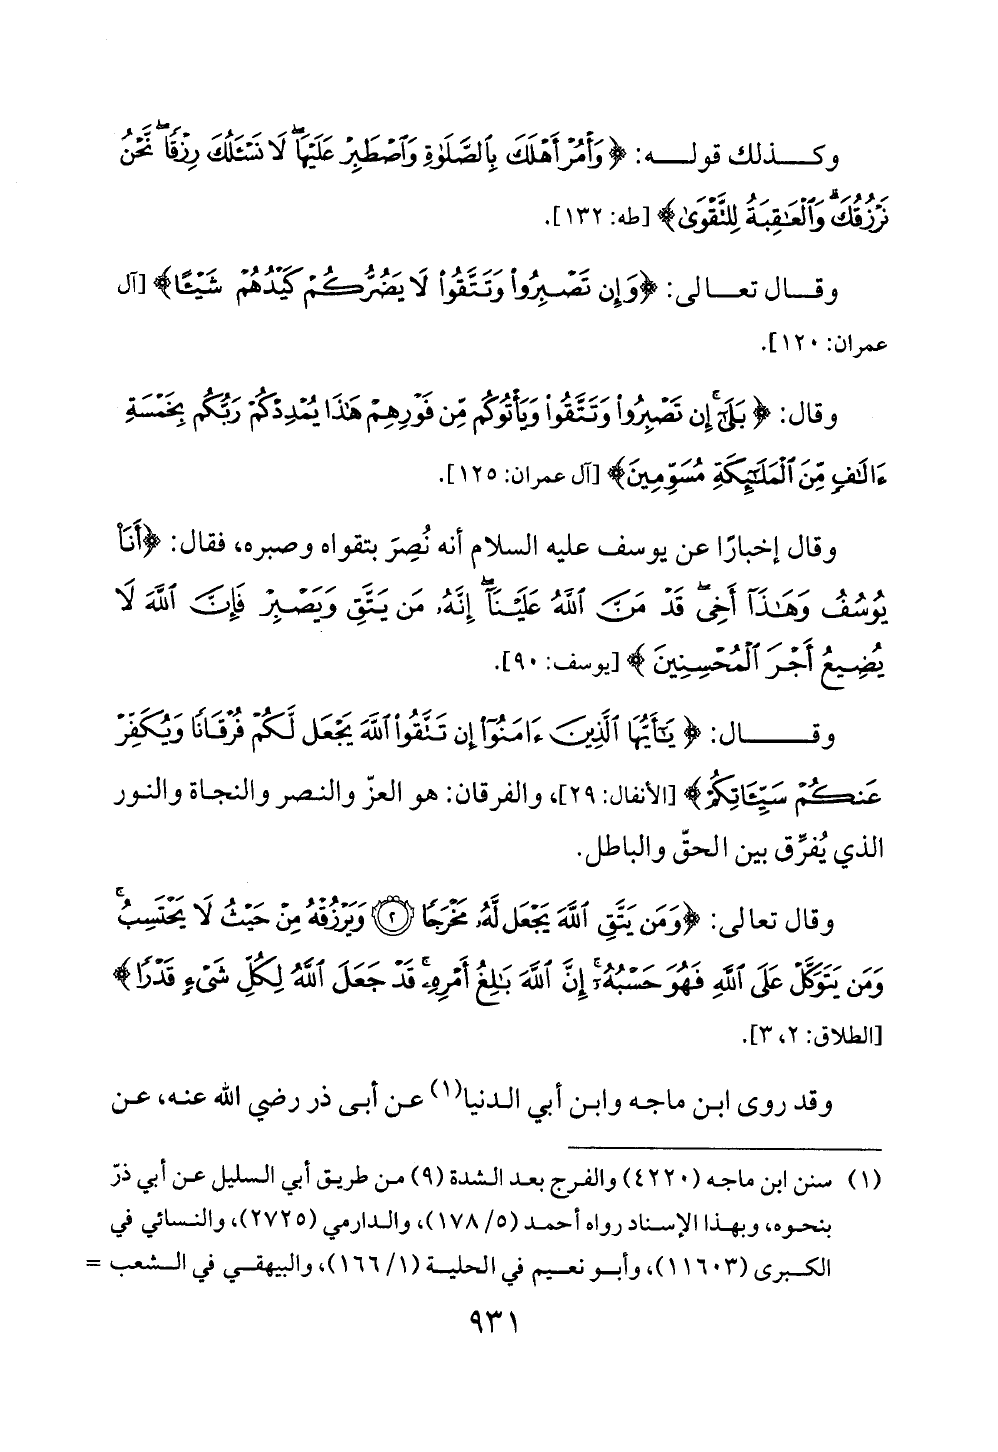 وكـــذلك قولـــه: ﴿ وَأْمُرْ أَهْلَكَ بِالصَّلَوٰةِ وَاصْطَبِرْ عَلَيْهَا ۖ لَا نَسْـَٔلُكَ رِزْقًا ۖ نَّحْنُ
نَرْزُقُكَ ۗ وَالْعَـٰقِبَةُ لِلتَّقْوَىٰ ﴾ [طه: ١٣٢].
وقـــال تعـــالى: ﴿وَإِن تَصْبِرُوا۟ وَتَتَّقُوا۟ لَا يَضُرُّكُمْ كَيْدُهُمْ شَيْـًٔا﴾ [آل
عمران: ١٢٠].
وقال: ﴿ بَلَىٰٓ ۚ إِن تَصْبِرُوا۟ وَتَتَّقُوا۟ وَيَأْتُوكُم مِّن فَوْرِهِمْ هَـٰذَا يُمْدِدْكُمْ رَبُّكُم بِخَمْسَةِ
ءَالَـٰفٍ مِّنَ الْمَلَـٰٓئِكَةِ مُسَوِّمِينَ﴾ [آل عمران: ١٢٥].
وقال إخبارًا عن يوسف عليه السلام أنه نُصِرَ بتقواه وصبره، فقال: ﴿أَنَا۠
يُوسُفُ وَهَـٰذَآ أَخِى ۖ قَدْ مَنَّ اللَّهُ عَلَيْنَآ ۖ إِنَّهُۥ مَن يَتَّقِ وَيَصْبِرْ فَإِنَّ اللَّهَ لَا
يُضِيعُ أَجْرَ الْمُحْسِنِينَ ﴾ [يوسف: ٩٠].
وقـــــال: ﴿ يَـٰٓأَيُّهَا الَّذِينَ ءَامَنُوٓا۟ إِن تَتَّقُوا۟ اللَّهَ يَجْعَل لَّكُمْ فُرْقَانًا وَيُكَفِّرْ
عَنكُمْ سَيِّـَٔاتِكُمْ﴾ [الأنفال: ٢٩]، والفرقان: هو العزّ والنصر والنجاة والنور
الذي يُفرِّق بين الحقّ والباطل.
وقال تعالى: ﴿وَمَن يَتَّقِ اللَّهَ يَجْعَل لَّهُۥ مَخْرَجًا ٢ وَيَرْزُقْهُ مِنْ حَيْثُ لَا يَحْتَسِبُ ۚ
وَمَن يَتَوَكَّلْ عَلَى اللَّهِ فَهُوَ حَسْبُهُۥٓ ۚ إِنَّ اللَّهَ بَـٰلِغُ أَمْرِهِۦ ۚ قَدْ جَعَلَ اللَّهُ لِكُلِّ شَىْءٍ قَدْرًا﴾
[الطلاق: ٢، ٣].
وقد روى ابن ماجه وابن أبي الدنيا(١) عن أبى ذر رضي الله عنه، عن
(١) سنن ابن ماجه (٤٢٢٠) والفرج بعد الشدة (٩) من طريق أبي السليل عن أبي ذرّ
بنحوه، وبهذا الإسناد رواه أحمد (٥/ ١٧٨)، والدارمي (٢٧٢٥)، والنسائي في
الكبرى (١١٦٠٣)، وأبو نعيم في الحلية (١/ ١٦٦)، والبيهقي في الشعب =
٩٣١